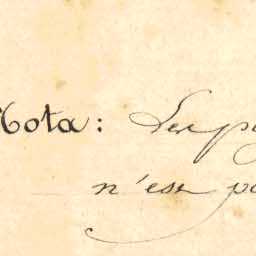 Nota: Les p
n'est pa